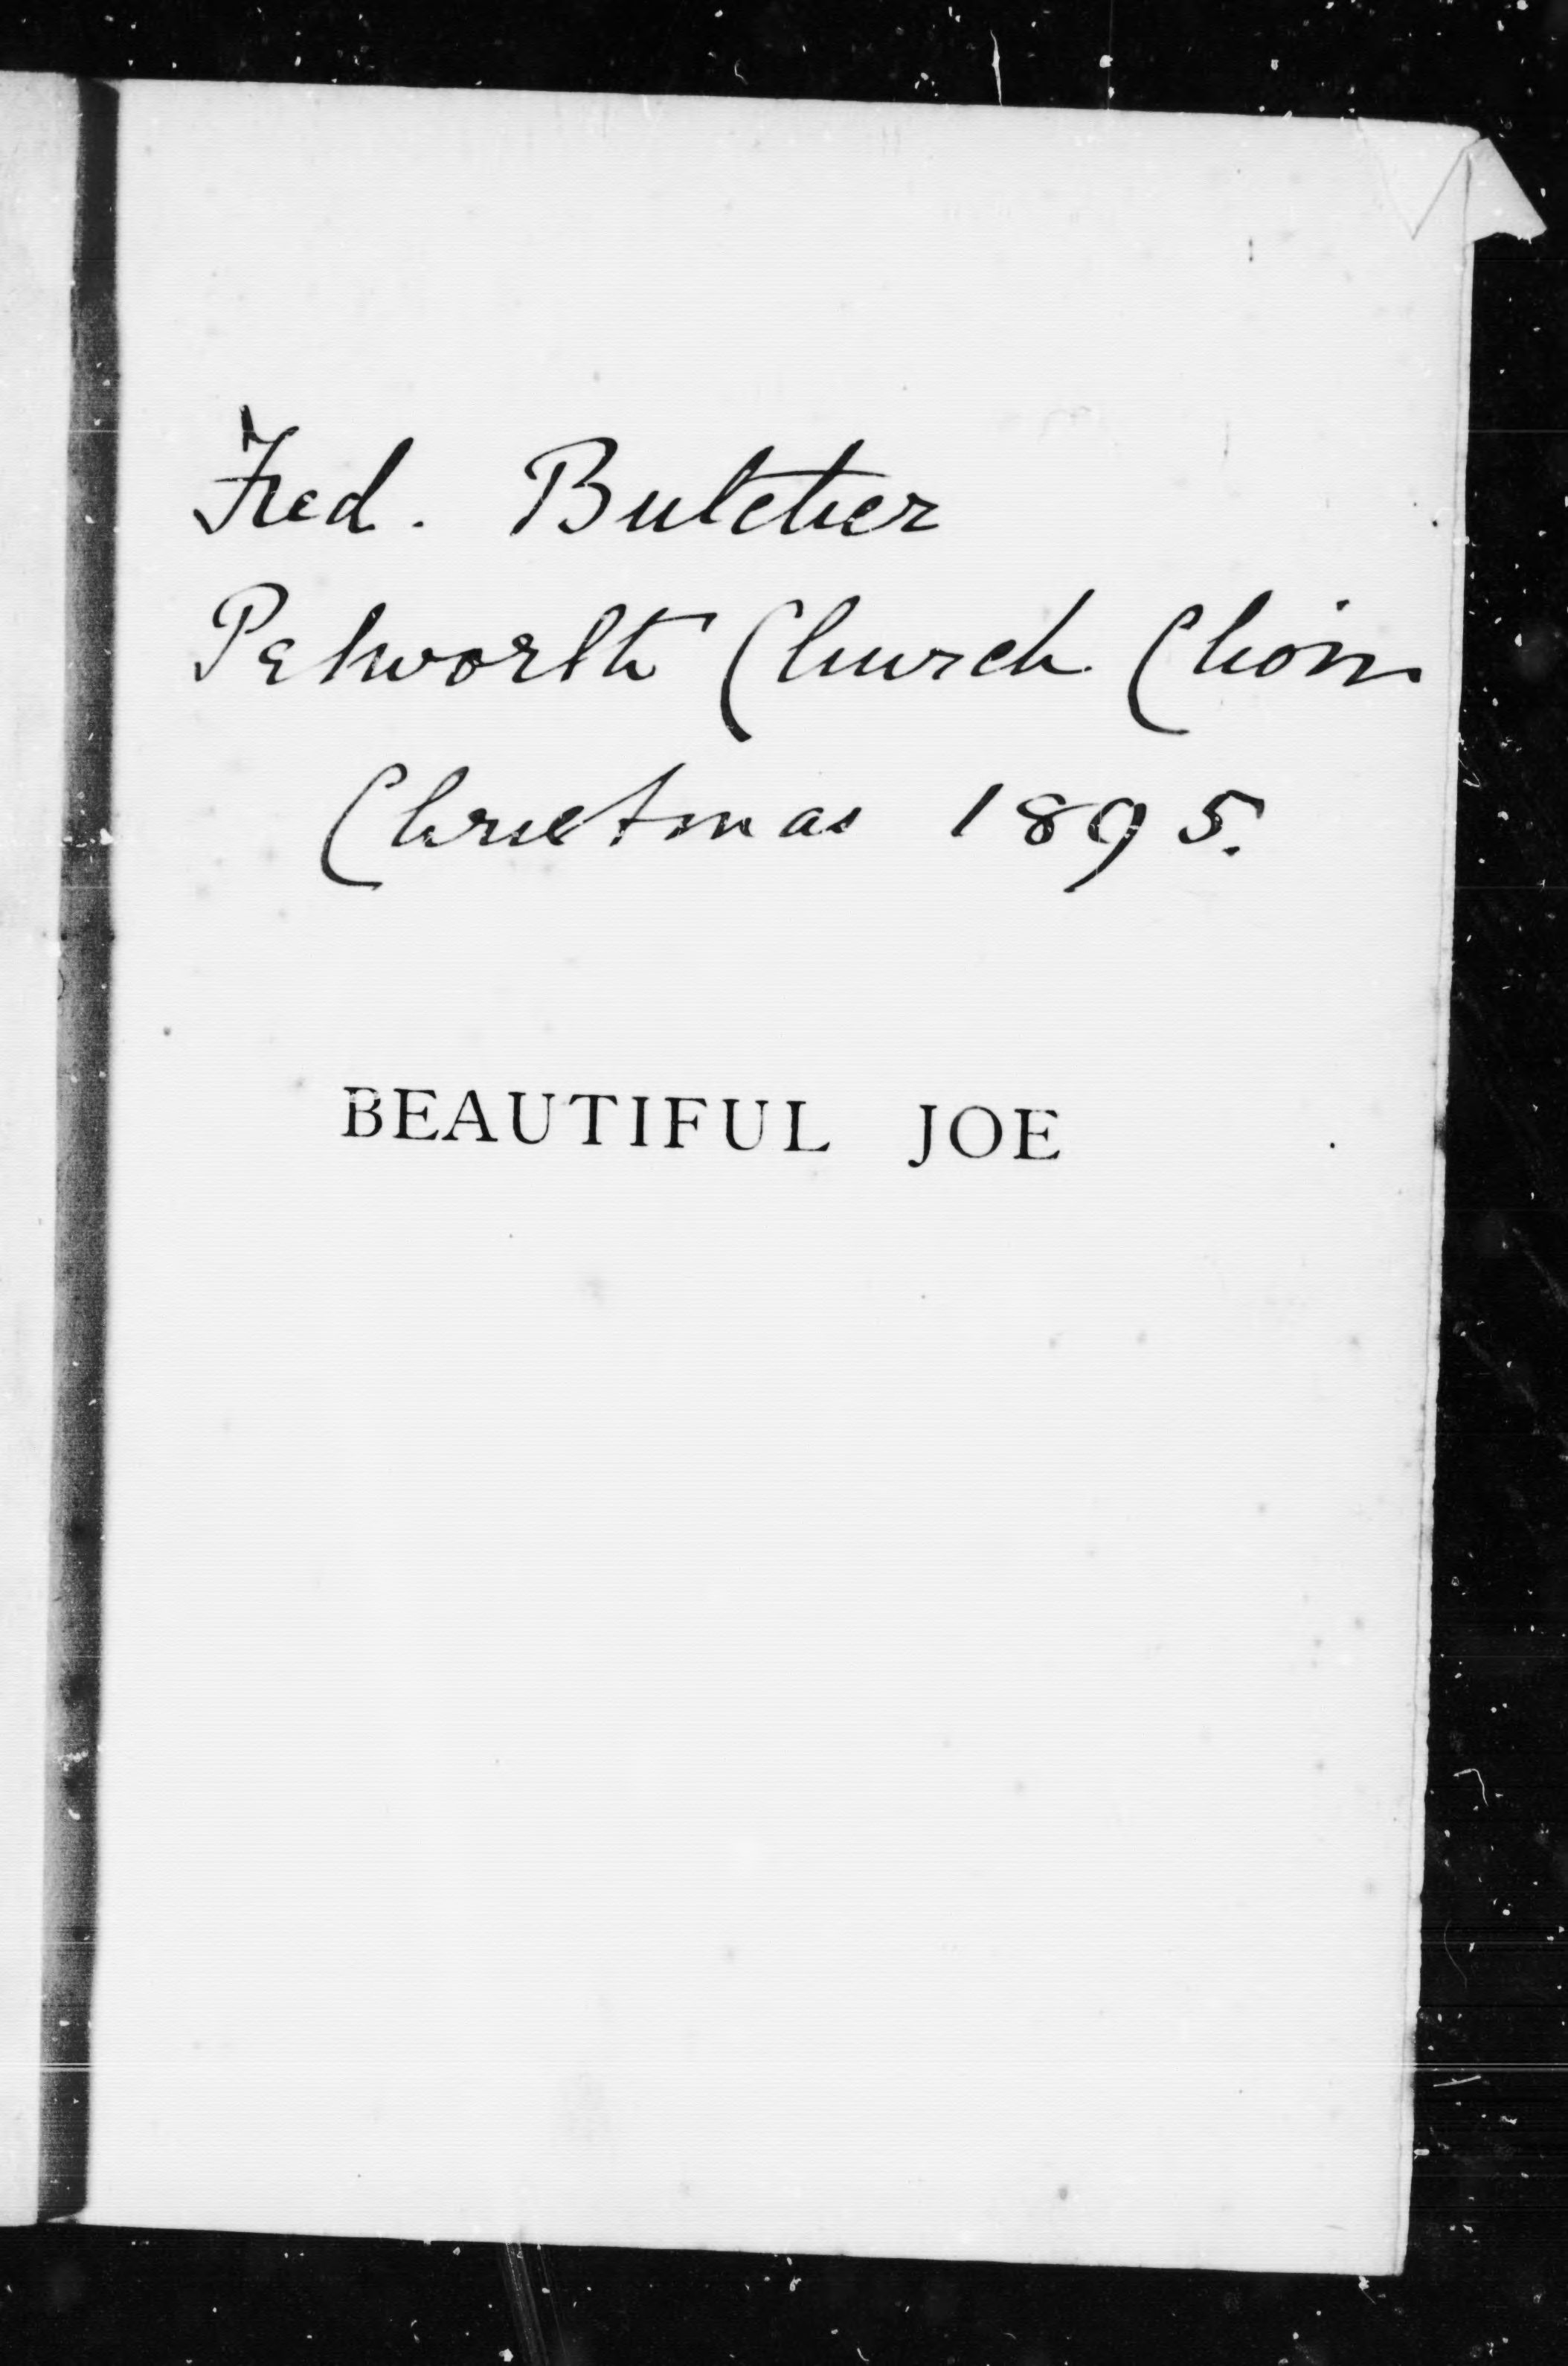 Fred. Butcher
Petworth Church Choir
Christmas 1895.
BEAUTIFUL JOE